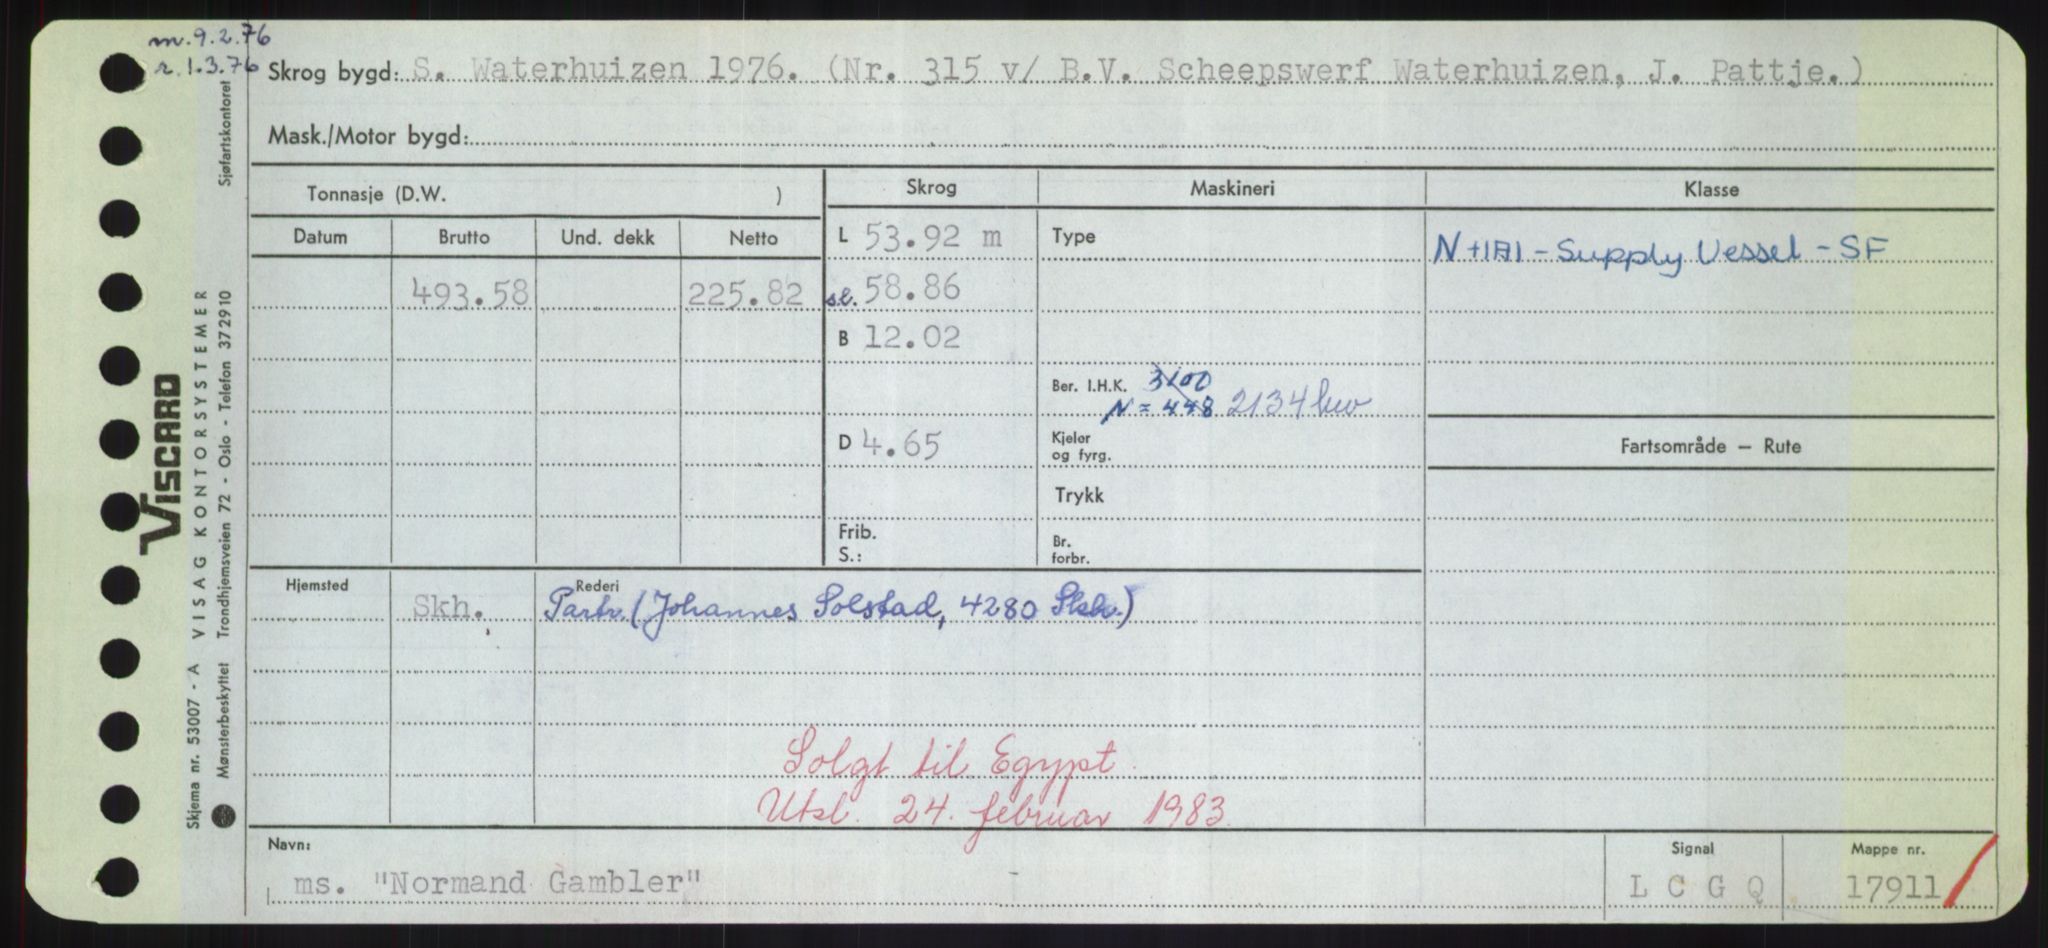 m. 9.2.76
r. 1.3.76
Skrog bygd: S. Waterhuizen 1976. (Nr. 315 v/ B.V. Scheepswerf Waterhuizen, J. Pattje.)
Mask./Motor bygd:
Tonnasje (D.W. )
Skrog
Maskineri
Klasse
Datum Brutto Und. dekk Netto
L 53.92 m
Type
N +1A1 - Supply Vessel - SF
493.58 225.82
sl. 58.86
B 12.02
Ber. I.H.K. 3100
N = 448 2134 kw
D 4.65
Kjeler
og fyrg.
Fartsområde — Rute
Trykk
Frib.
S.:
Br.
forbr.
Hjemsted
Rederi
Skh. Partr. (Johannes Solstad, 4280 Skh.)
Solgt til Egypt.
Utsl. 24. februar 1983.
Navn:
ms. "Normand Gambler"
Signal
L C G Q
Mappe nr.
17911
Sjøfartskontoret
VISCARD
VISAG KONTORSYSTEMER
Trondhjemsveien 72 - Oslo - Telefon 372910
Skjema nr. 53007 - A
Mønsterbeskyttet